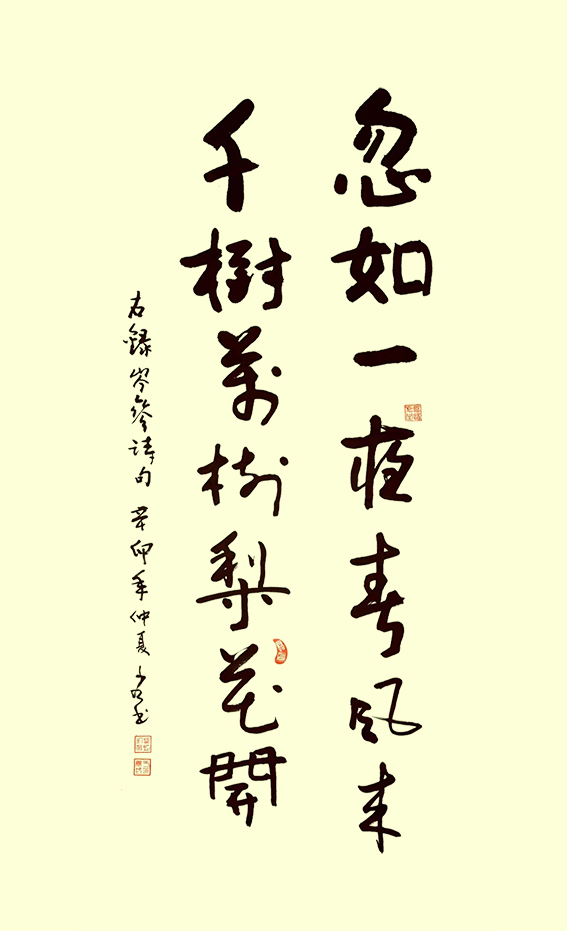 忽如一夜春風来
千樹萬樹梨花開
右錄岑參詩句 辛卯年仲夏